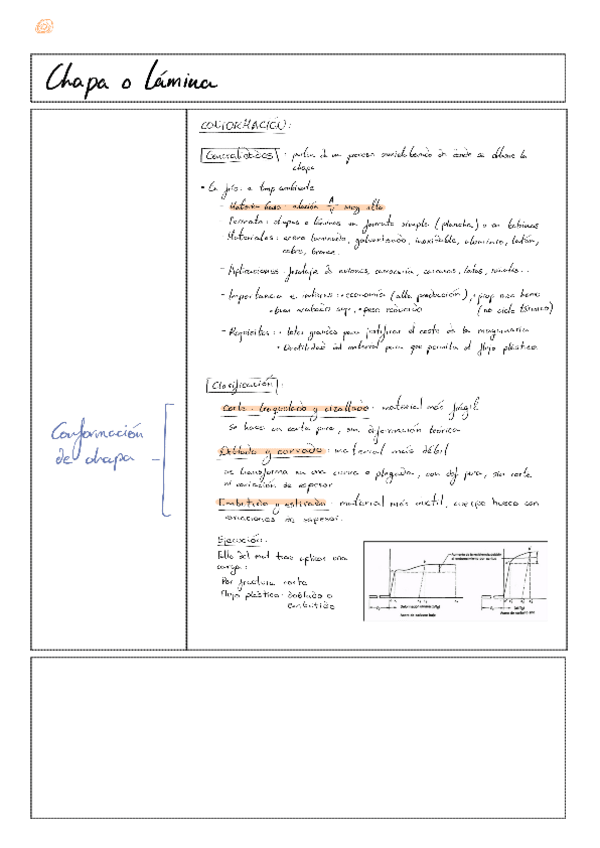 Chapa o Lámina
CONFORMACIÓN:
Generalidades: parten de un proceso de donde se obtiene la
chapa
• En frío: a temp ambiente
- Material base: relación A/V muy alta
- Formato: chapas o láminas en formato simple (plancha) o en bobinas
- Materiales: acero laminado, galvanizado, inoxidable, aluminio, latón,
cobre, bronce.
- Aplicaciones: de aviones, carrocería, carcasas, latas,
- Importancia e : • economía (alta producción), • prop
• buen acabado sup, • peso reducido (no ciclo térmico)
- Requisitos: • lotes grandes para justificar el coste de la maquinaria
• Ductilidad del material para que permita el flujo plástico
Clasificación:
Corte: troquelado y cizallado: material más frágil
Se hace un corte puro, sin deformación teórica
Doblado y curvado: material más débil
se transforma en una curva o plegada, con def pura, sin corte
ni variación de espesor
Embutido y estirado: material más dúctil, cuerpo hueco con
variaciones de espesor.
Conformación
de chapa
Ejecución:
Fallo del mat tras aplicar una
carga:
Por fractura: corte
Flujo plástico: doblado o
embutido